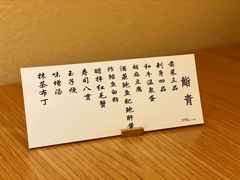 鮨青
前菜三品
刺身四品
和牛溫泉蛋
胡麻豆腐
酒蒸鮑魚配鮑肝醬
炸鱈魚白
醋拌紅毛蟹
壽司八貫
玉子燒
味噌湯
抹茶布丁